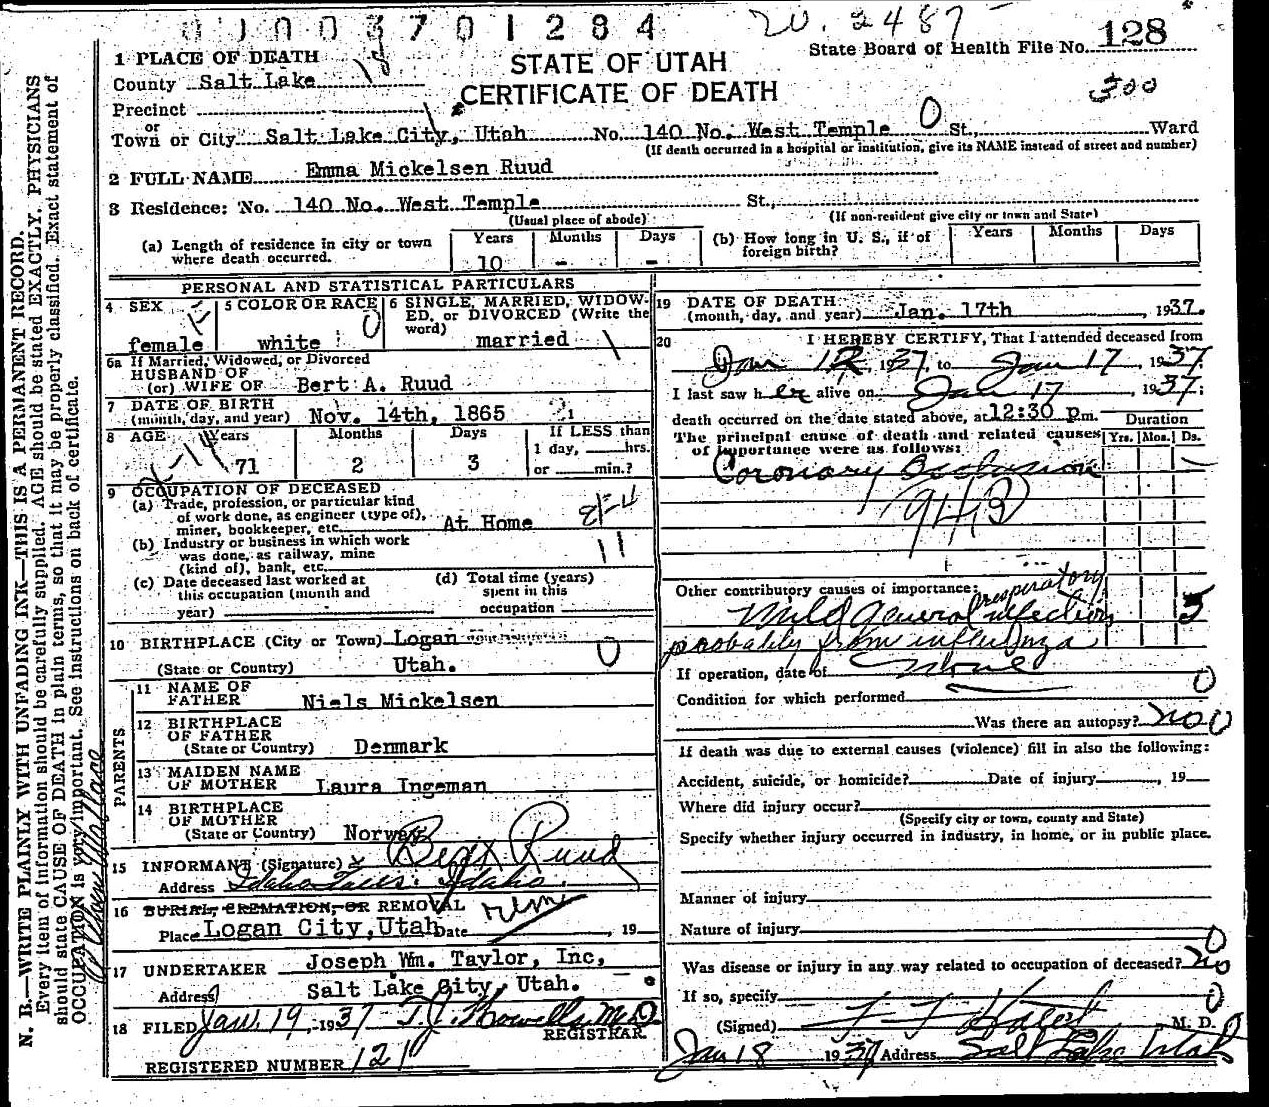 0 1 0 0 3 7 0 1 2 8 4
20. 2487
State Board of Health File No. 128
300
STATE OF UTAH
CERTIFICATE OF DEATH
1 PLACE OF DEATH
County Salt Lake
Precinct
or
Town or City Salt Lake City, Utah No. 140 No. West Temple St., Ward
(If death occurred in a hospital or institution, give its NAME instead of street and number)
2 FULL NAME Emma Mickelsen Ruud
3 Residence: No. 140 No. West Temple St.,
(Usual place of abode) (If non-resident give city or town and State)
(a) Length of residence in city or town where death occurred. Years 10 Months - Days -
(b) How long in U. S., if of foreign birth? Years Months Days
PERSONAL AND STATISTICAL PARTICULARS
4 SEX female
5 COLOR OR RACE white
6 SINGLE, MARRIED, WIDOWED, or DIVORCED (Write the word) married
6a If Married, Widowed, or Divorced
HUSBAND OF
(or) WIFE OF Bert A. Ruud
7 DATE OF BIRTH
(month, day, and year) Nov. 14th, 1865
8 AGE Years 71 Months 2 Days 3 If LESS than 1 day, hrs. or min.?
9 OCCUPATION OF DECEASED
(a) Trade, profession, or particular kind
of work done, as engineer (type of),
miner, bookkeeper, etc. At Home
(b) Industry or business in which work
was done, as railway, mine
(kind of), bank, etc. 11
(c) Date deceased last worked at
this occupation (month and
year)
(d) Total time (years)
spent in this
occupation
10 BIRTHPLACE (City or Town) Logan
(State or Country) Utah.
PARENTS
11 NAME OF FATHER Niels Mickelsen
12 BIRTHPLACE OF FATHER
(State or Country) Denmark
13 MAIDEN NAME OF MOTHER Laura Ingeman
14 BIRTHPLACE OF MOTHER
(State or Country) Norway
15 INFORMANT (Signature) x Bert Ruud
Address Idaho Falls. Idaho.
16 BURIAL, CREMATION, OR REMOVAL rem
Place Logan City, Utah Date , 19
17 UNDERTAKER Joseph Wm. Taylor, Inc,
Address Salt Lake City, Utah.
18 FILED Jan. 19, 1937 T.J. Howells M.D
REGISTRAR
REGISTERED NUMBER 121
19 DATE OF DEATH
(month, day, and year) Jan. 17th , 1937.
20 I HEREBY CERTIFY, That I attended deceased from
Jan 12, 1937, to Jan 17, 1937.
I last saw her alive on Jan 17, 1937.
death occurred on the date stated above, at 12:30 pm.
Duration
Yrs. Mos. Ds.
The principal cause of death and related causes
of importance were as follows:
Coronary Occlusion
94B
Other contributory causes of importance:
Mild general respiratory infection 5
probably from influenza
If operation, date of None
Condition for which performed 0
Was there an autopsy? no 0
If death was due to external causes (violence) fill in also the following:
Accident, suicide, or homicide? Date of injury , 19
Where did injury occur?
(Specify city or town, county and State)
Specify whether injury occurred in industry, in home, or in public place.
Manner of injury
Nature of injury 0
Was disease or injury in any way related to occupation of deceased? no
If so, specify 0
(Signed) M. D.
Jan 18 1937 Address Salt Lake Utah
N. B.—WRITE PLAINLY WITH UNFADING INK—THIS IS A PERMANENT RECORD.
Every item of information should be carefully supplied. AGE should be stated EXACTLY. PHYSICIANS
should state CAUSE OF DEATH in plain terms, so that it may be properly classified. Exact statement of
OCCUPATION is very important. See instructions on back of certificate.